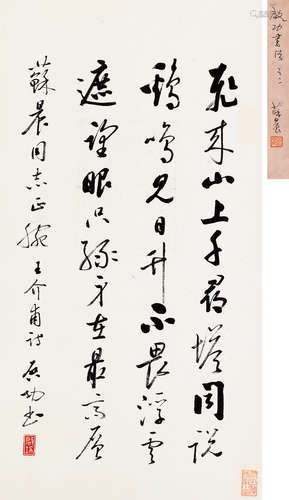 飛来山上千尋塔聞說
鷄鳴見日升不畏浮雲
遮望眼只緣身在最高層
蘇晨同志正腕 王介甫詩 启功書
啟功書法之二 蘇晨